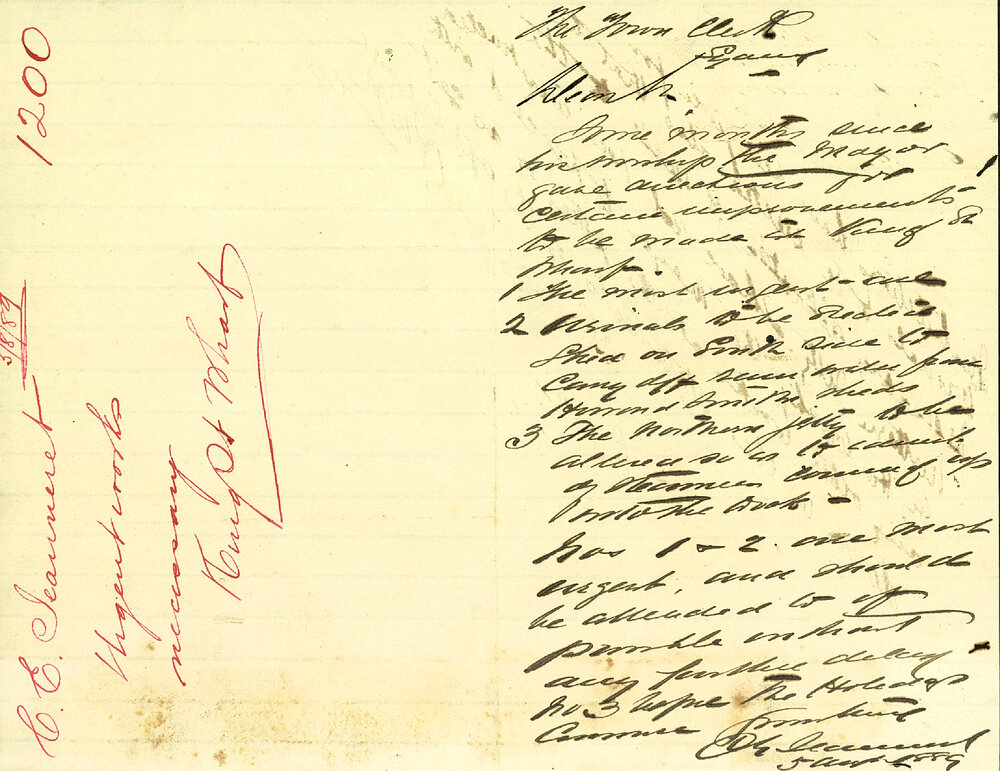 1200
C. E. Jeanneret 5/8/89
Urgent works
necessary
King St Wharf
The Town Clerk
Sydney
Dear Sir
Some months since
his worship the Mayor
gave directions for
certain improvements
to be made at King St
Wharf
1 The most urgent are
2 Urinals to be erected
Shed on South side to
Carry off rain water from
Howard Smiths sheds
3 The Northern Jetty to be
altered so as to admit
of steamers coming up
into the dock
Nos 1 & 2 are most
urgent, and should
be attended to if
possible without
any further delay
No 3 before the Holidays
Commence
Yours truly
Jeanneret
5 Augt 1889